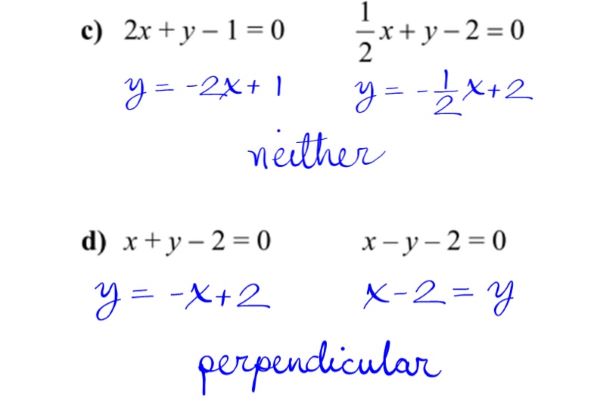 c) 2x + y – 1 = 0 1/2 x + y – 2 = 0
y = -2x + 1 y = -1/2 x + 2
neither
d) x + y – 2 = 0 x – y – 2 = 0
y = -x + 2 x - 2 = y
perpendicular